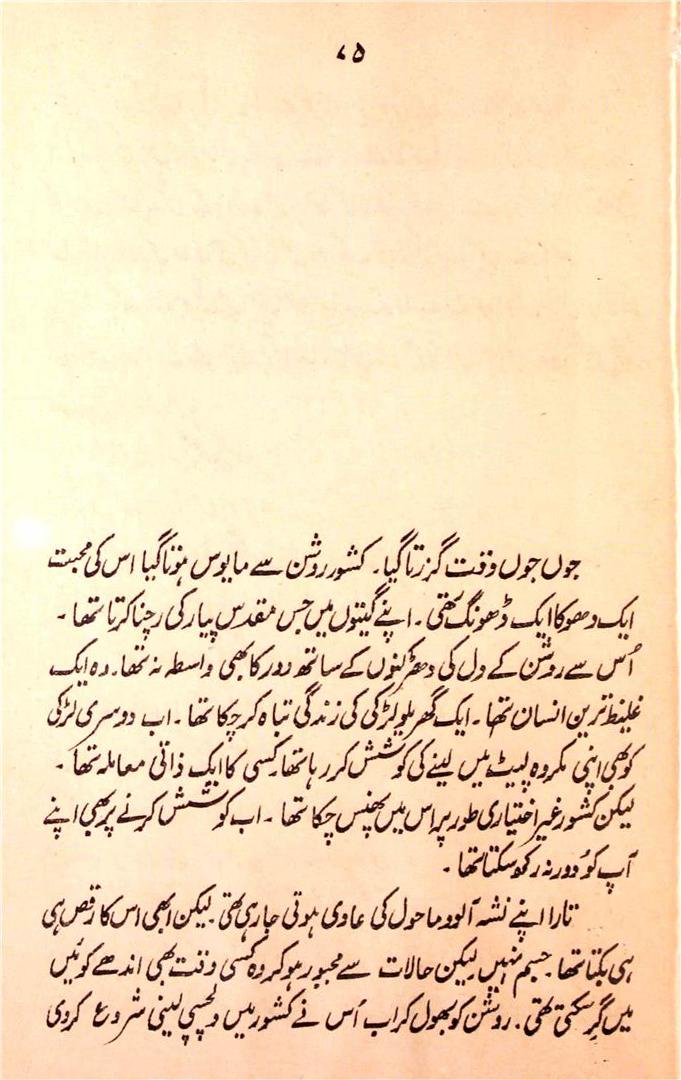 ۷۵
جوں جوں وقت گزرتا گیا۔ کشور روشن سے مایوس ہوتا گیا اس کی محبت
ایک دھوکا ایک ڈھونگ تھی۔ اپنے گیتوں میں جس مقدس پیار کی رچنا کرتا تھا۔
اُس سے روشن کے دل کی دھڑکنوں کے ساتھ دور کا بھی واسطہ نہ تھا۔ وہ ایک
غلیظ ترین انسان تھا۔ ایک گھریلو لڑکی کی زندگی تباہ کر چکا تھا۔ اب دوسری لڑکی
کو بھی اپنی مکروہ لپیٹ میں لینے کی کوشش کر رہا تھا۔ کسی کا ایک ذاتی معاملہ تھا۔
لیکن کشور غیر اختیاری طور پر اس میں پھنس چکا تھا۔ اب کوشش کرنے پر بھی اپنے
آپ کو دور نہ رکھ سکتا تھا۔
تارا اپنے نشہ آلود ماحول کی عادی ہوتی جا رہی تھی۔ لیکن ابھی اس کا رقص ہی
ہی بکتا تھا۔ جسم نہیں لیکن حالات سے مجبور ہو کر وہ کسی وقت بھی اندھے کوئیں
میں گر سکتی تھی۔ روشن کو بھول کر اب اُس نے کشور میں دلچسپی لینی شروع کر دی